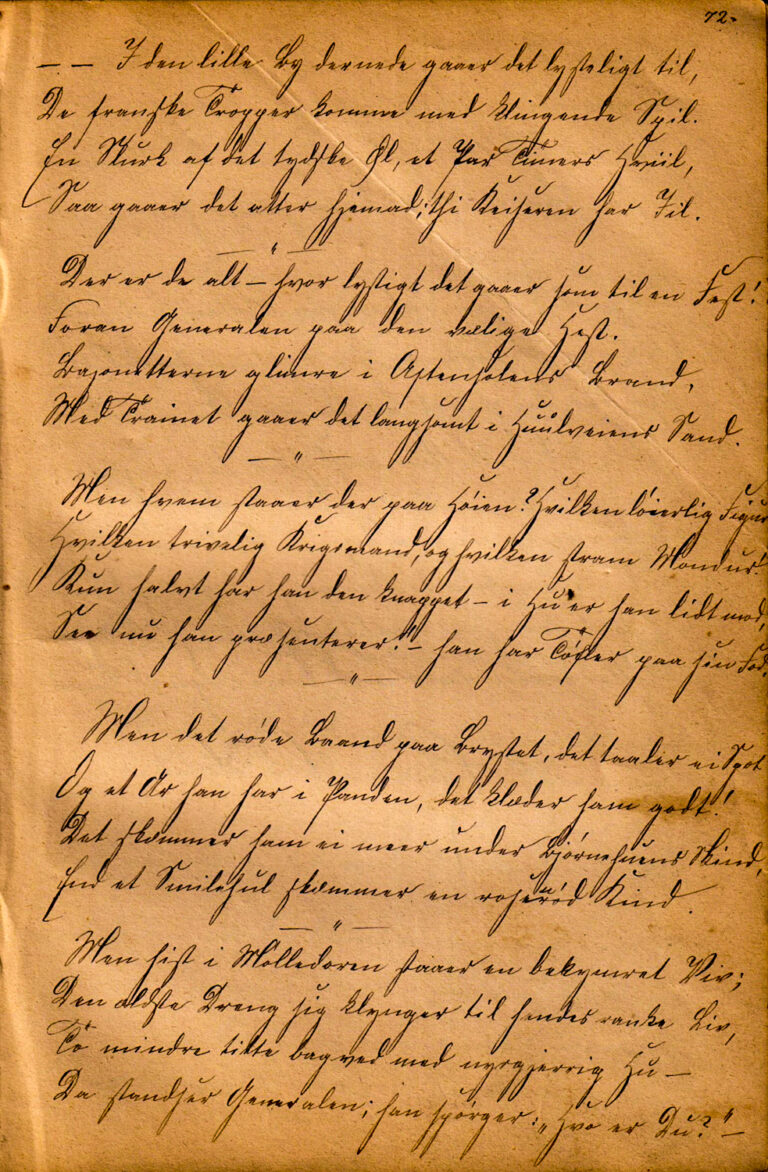 72.
– – I den lille By dernede gaaer det lysteligt til,
De franske Tropper komme med klingende Spil.
En Slurk af det tydske Øl, et Par Timers Hviil,
Saa gaaer det atter hjemad; thi Keiseren har Iil.
— " —
Der er de alt – hvor lystigt det gaaer som til en Fest!
Foran Generalen paa den vælige Hest.
Bajonetterne glimre i Aftensolens Brand,
Med Trainet gaaer det langsomt i Huulveiens Sand.
— " —
Men hvem staaer der paa Høien? Hvilken løierlig Figur
Hvilken trivelig Krigsmand, og hvilken stram Mondur!
Kun halvt har han den knappet – i Hu er han lidt mod,
See nu han præsenterer! – han har Tøfler paa sin Fod.
— " —
Men det røde Baand paa Brystet, det taaler ei Spot
Og et Ar han har i Panden, det klæder ham godt!
Det skæmmer ham ei meer under Bjørnehuens Skind,
End et Smilehul skæmmer en rosenrød Kind.
— " —
Men hist i Mølledøren staaer en bekymret Viv;
Den ældste Dreng sig klynger til hendes ranke Liv,
To mindre titte bagved med nysgjerrig Hu –
Da standser Generalen; han spørger: „Hvo er Du?" –